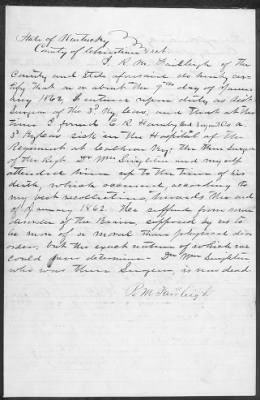 State of Kentucky
County of Christian Sct.
I R. M. Fairleigh of the
County and State aforesaid do hereby cer-
tify that on or about the 9th day of Janu-
ary 1862, I entered upon duty as Asst
Surgeon of the 3d Ky and that at that
time I found E. R. Co A.
3d Ky sick in the Hospital of the
Regiment at Ky; the then Surgeon
of the Regt. Dr Wm Singleton and myself
attended him up to the time of his
death, which occurred, according to
my best recollection, towards the end
of January 1862. He suffered from some
disorder of the Brain, supposed by us to
be more of a moral than physical dis-
order, but the exact nature of which we
could never determine. Dr Wm Singleton
who was then Surgeon, is now dead
R. M. Fairleigh